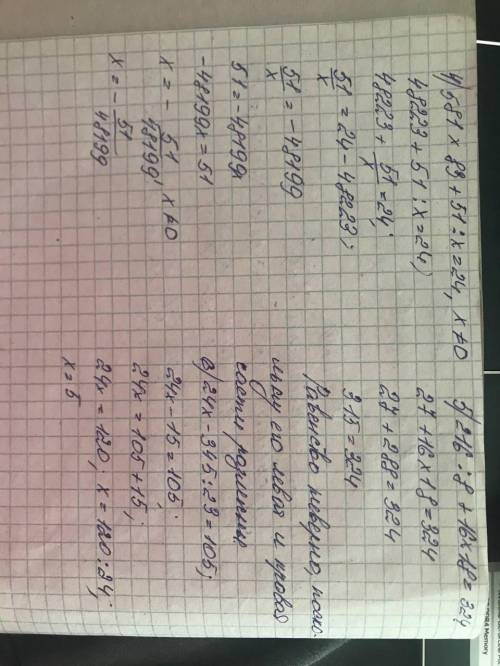 4) 581 × 83 + 51 : x = 24, x ≠ 0
48223 + 51 : x = 24;
48223 + 51/x = 24;
51/x = 24 - 48223;
51/x = - 48199
51 = - 48199x
- 48199x = 51
x = - 51/48199, x ≠ 0
x = - 51/48199
5) 216 : 8 + 16 x 18 = 324
27 + 16 x 18 = 324
27 + 288 = 324
315 = 324
Равенство неверно, поско-
льку его левая и правая
части различные
6) 24x - 345 : 23 = 105;
24x - 15 = 105;
24x = 105 + 15;
24x = 120, x = 120 : 24;
x = 5
Memory